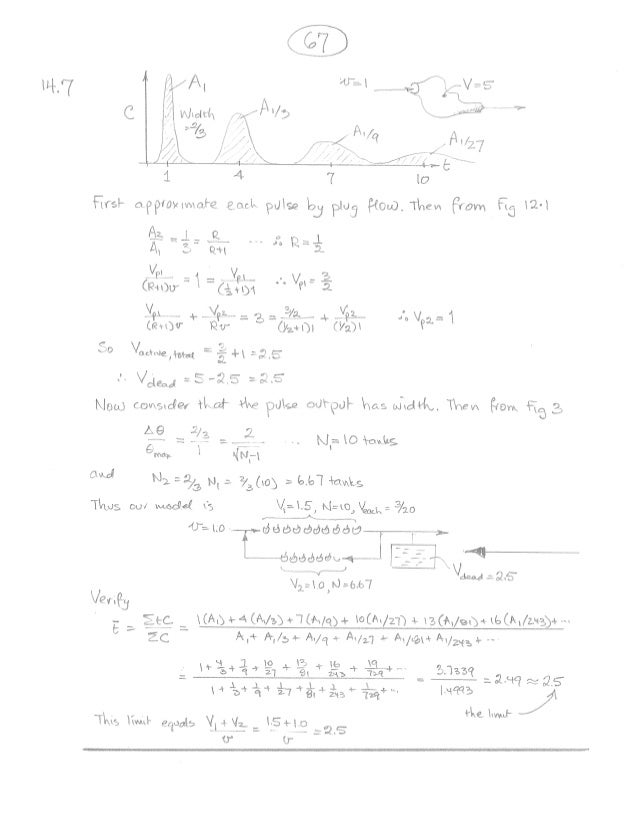 67
14.7
C
A1
Width = 2/3
A1/3
A1/9
A1/27
v=1
V=5
1 4 7 10 t
First approximate each pulse by plug flow. Then from Fig 12.1
A2/A1 = 1/3 = R/(R+1) ... ∴ R = 1/2
Vp1/((R+1)v) = 1 = Vp1/((1/2+1)1) ∴ Vp1 = 3/2
Vp1/((R+1)v) + Vp2/(Rv) = 3 = (3/2)/((1/2+1)1) + Vp2/((1/2)1) ∴ Vp2 = 1
So Vactive, total = 3/2 + 1 = 2.5
∴ Vdead = 5 - 2.5 = 2.5
Now consider that the pulse output has width. Then from Fig 3
Δθ/θmax = (2/3)/1 = 2/√(N1-1) ... N1 = 10 tanks
and N2 = 2/3 N1 = 2/3 (10) = 6.67 tanks
Thus our model is
V1=1.5, N=10, Veach = 3/20
v=1.0
V2=1.0, N=6.67
Vdead = 2.5
Verify
t̄ = ΣtC/ΣC = (1(A1) + 4(A1/3) + 7(A1/9) + 10(A1/27) + 13(A1/81) + 16(A1/243) + ...)/(A1 + A1/3 + A1/9 + A1/27 + A1/81 + A1/243 + ...)
= (1 + 4/3 + 7/9 + 10/27 + 13/81 + 16/243 + 19/729 + ...)/(1 + 1/3 + 1/9 + 1/27 + 1/81 + 1/243 + 1/729 + ...) = 3.7339/1.4993 = 2.49 ≈ 2.5
the limit
This limit equals (V1 + V2)/v = (1.5 + 1.0)/v = 2.5